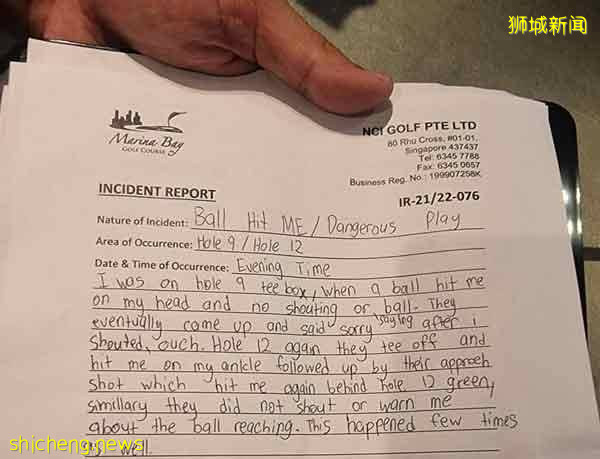 狮城新闻
Marina Bay
GOLF COURSE
NCI GOLF PTE LTD
80 Rhu Cross, #01-01,
Singapore 437437
Tel: 6345 7788
Fax: 6345 0657
Business Reg. No.: 199907258K
INCIDENT REPORT
IR-21/22-076
Nature of Incident: Ball Hit ME / Dangerous Play
Area of Occurrence: Hole 9 / Hole 12
Date & Time of Occurrence: Evening Time
I was on hole 9 tee box, when a ball hit me
on my head and no shouting or ball. They
eventually came up and said sorry saying after i
shouted, ouch. Hole 12 again they tee off and
hit me on my ankle followed up by their approch
shot which hit me again behind hole 12 green,
simillary they did not shout or warn me
about the ball reaching. This happened few times
as well.
shicheng.news